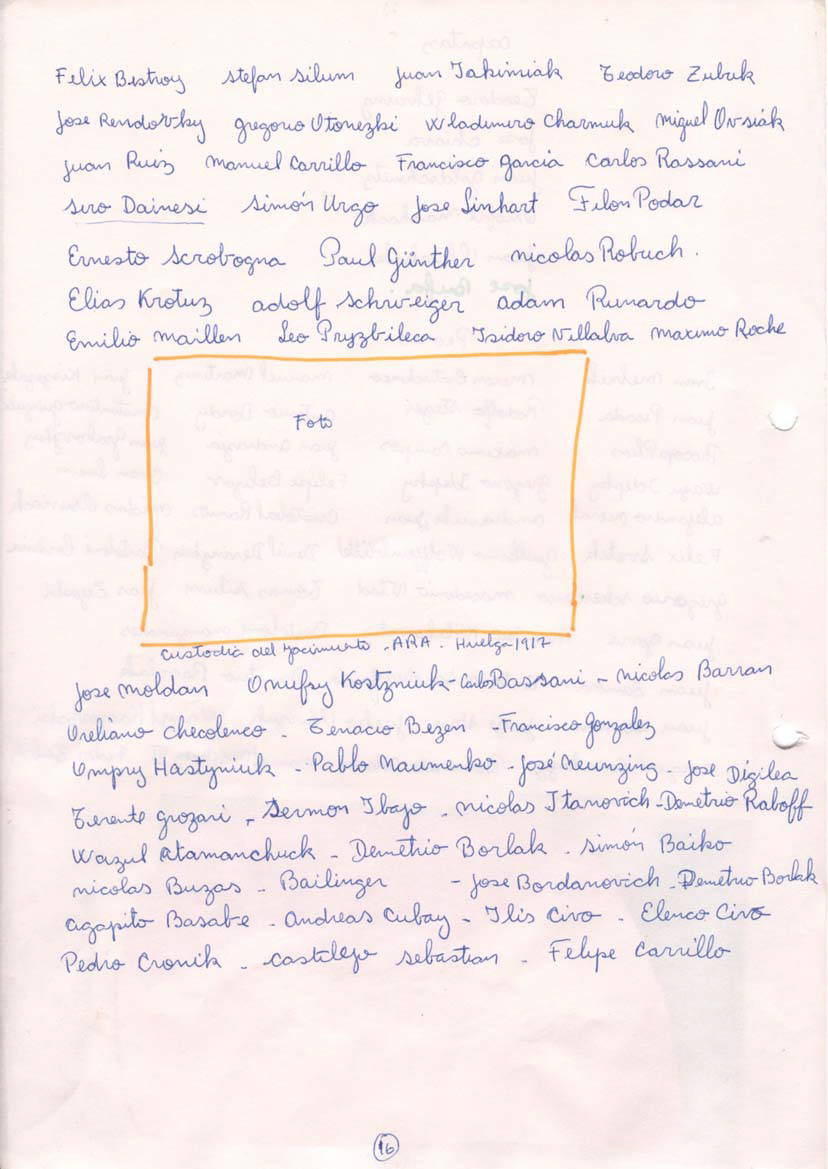 Felix Bestroy stefan silum Juan Jakimiak Teodoro Zubuk
Jose Rendovky gregorio Utonezki Wladimiro Charmuk Miguel Ovsiák
Juan Ruiz Manuel Carrillo Francisco garcia Carlos Rassani
siro Dainesi simón Urgo Jose Linhart Filon Podar
Ernesto scrobogna Paul Günther nicolas Robuch.
Elias Krotuz adolf schweiger adam Runardo
Emilio maillen Leo Pryzbileca Isidoro Villalva maximo Roche
Foto
custodia del yacimiento - ARA. Huelga 1917
Jose moldan Onufry Kostzniuk - Carlos Bassani - nicolas Barran
Ureliano checolenco. Tenacio Bezen - Francisco Gonzalez
Umpry Hastyniuk - Pablo Naumenko - José Neunzing - Jose Digilea
Terente grozari - sermon Ibajo. nicolas Itanovich - Demetrio Raboff
Wazul Atamanchuck - Demetrio Borlak. simón Baiko
nicolas Buzas - Bailinger - Jose Bordanovich - Demetrio Borlak
agapito Basabe. andreas Cubay - Ilis Civo. Elenco Civo
Pedro Cronik. castilejo sebastian. Felipe Carrillo
16